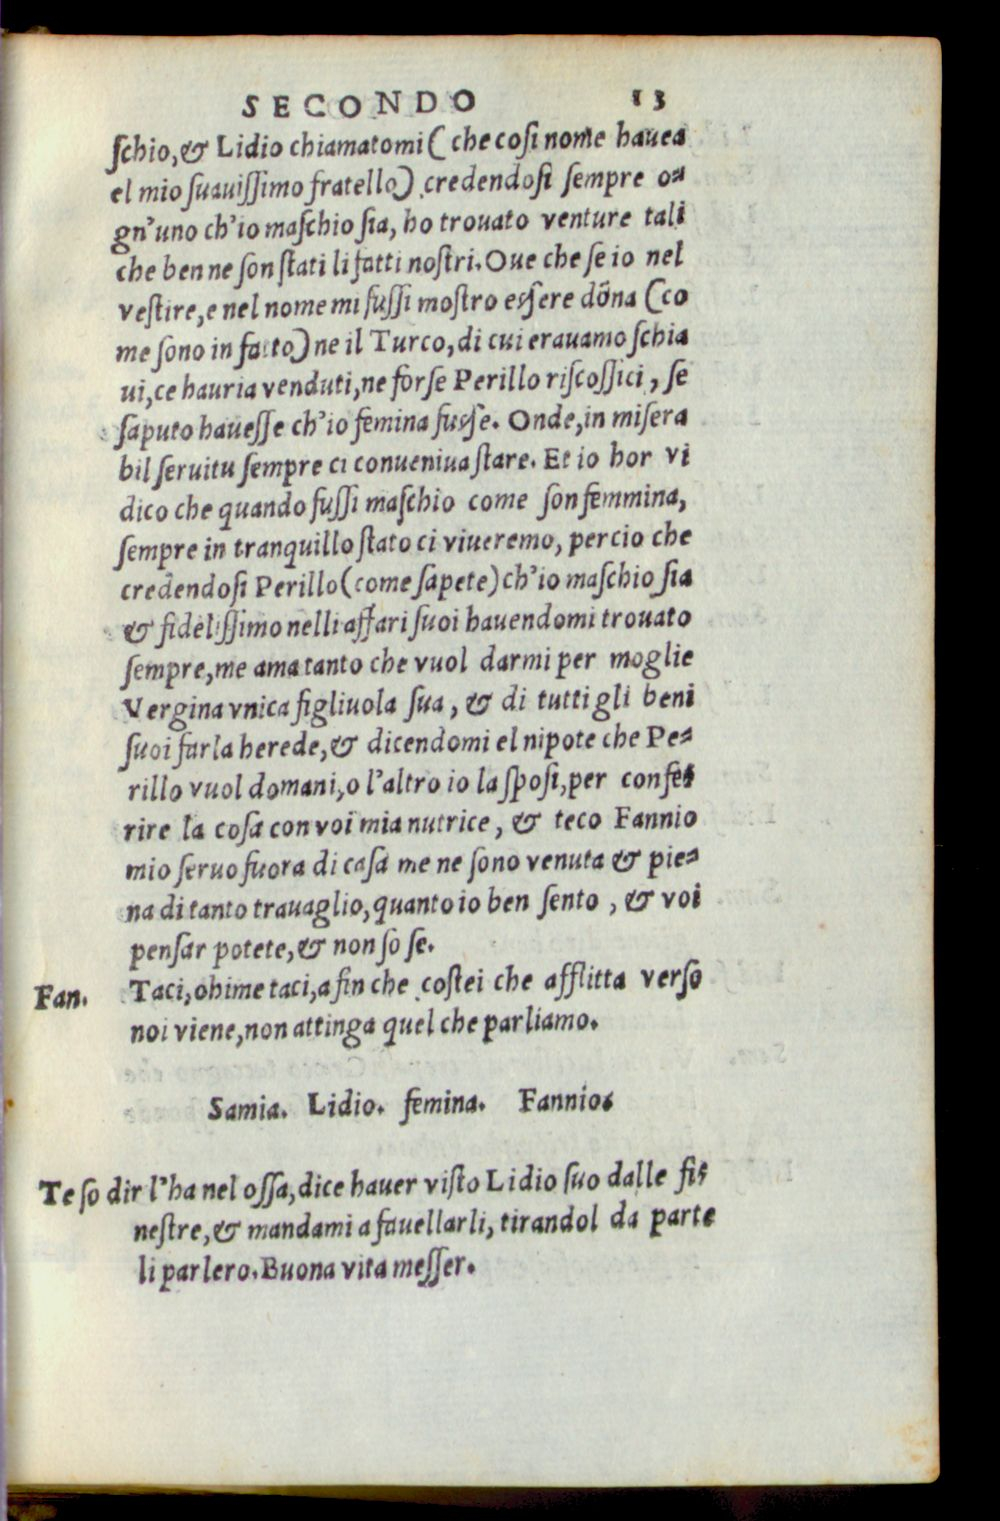 SECONDO 13
ſchio, & Lidio chiamatomi ( che coſi nome hauea
el mio ſuauiſſimo fratello) credendoſi ſempre o=
gn'uno ch'io maſchio ſia, ho trouato venture tali
che ben ne ſon ſtati li fatti noſtri. Oue che ſe io nel
veſtire, e nel nome mi fuſſi moſtro eſſere dōna (co
me ſono in fatto) ne il Turco, di cui erauamo ſchia
ui, ce hauria venduti, ne forſe Perillo riſcoſſici, ſe
ſaputo haueſſe ch'io femina fuſſe. Onde, in miſera
bil ſeruitu ſempre ci conueniua ſtare. Et io hor vi
dico che quando fuſſi maſchio come ſon femmina,
ſempre in tranquillo ſtato ci viueremo, percio che
credendoſi Perillo (come ſapete) ch'io maſchio ſia
& fideliſſimo nelli affari ſuoi hauendomi trouato
ſempre, me ama tanto che vuol darmi per moglie
Vergina vnica figliuola ſua, & di tutti gli beni
ſuoi farla herede, & dicendomi el nipote che Pe=
rillo vuol domani, o l'altro io la ſpoſi, per confe=
rire la coſa con voi mia nutrice, & teco Fannio
mio ſeruo fuora di caſa me ne ſono venuta & pie=
na di tanto trauaglio, quanto io ben ſento, & voi
penſar potete, & non ſo ſe.
Fan. Taci, ohime taci, a fin che coſtei che afflitta verſo
noi viene, non attinga quel che parliamo.
Samia. Lidio. femina. Fannio.
Te ſo dir l'ha nel oſſa, dice hauer viſto Lidio ſuo dalle fi=
neſtre, & mandami a fauellarli, tirandol da parte
li parlero. Buona vita meſſer.